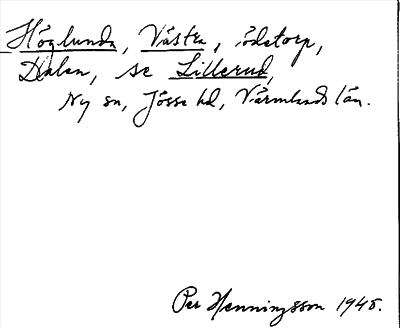 Höglunda, Västra, ödetorp,
Dalen, se Lillerud,
Ny sn, Jösse hd, Värmlands län.
Per Henningsson 1948.